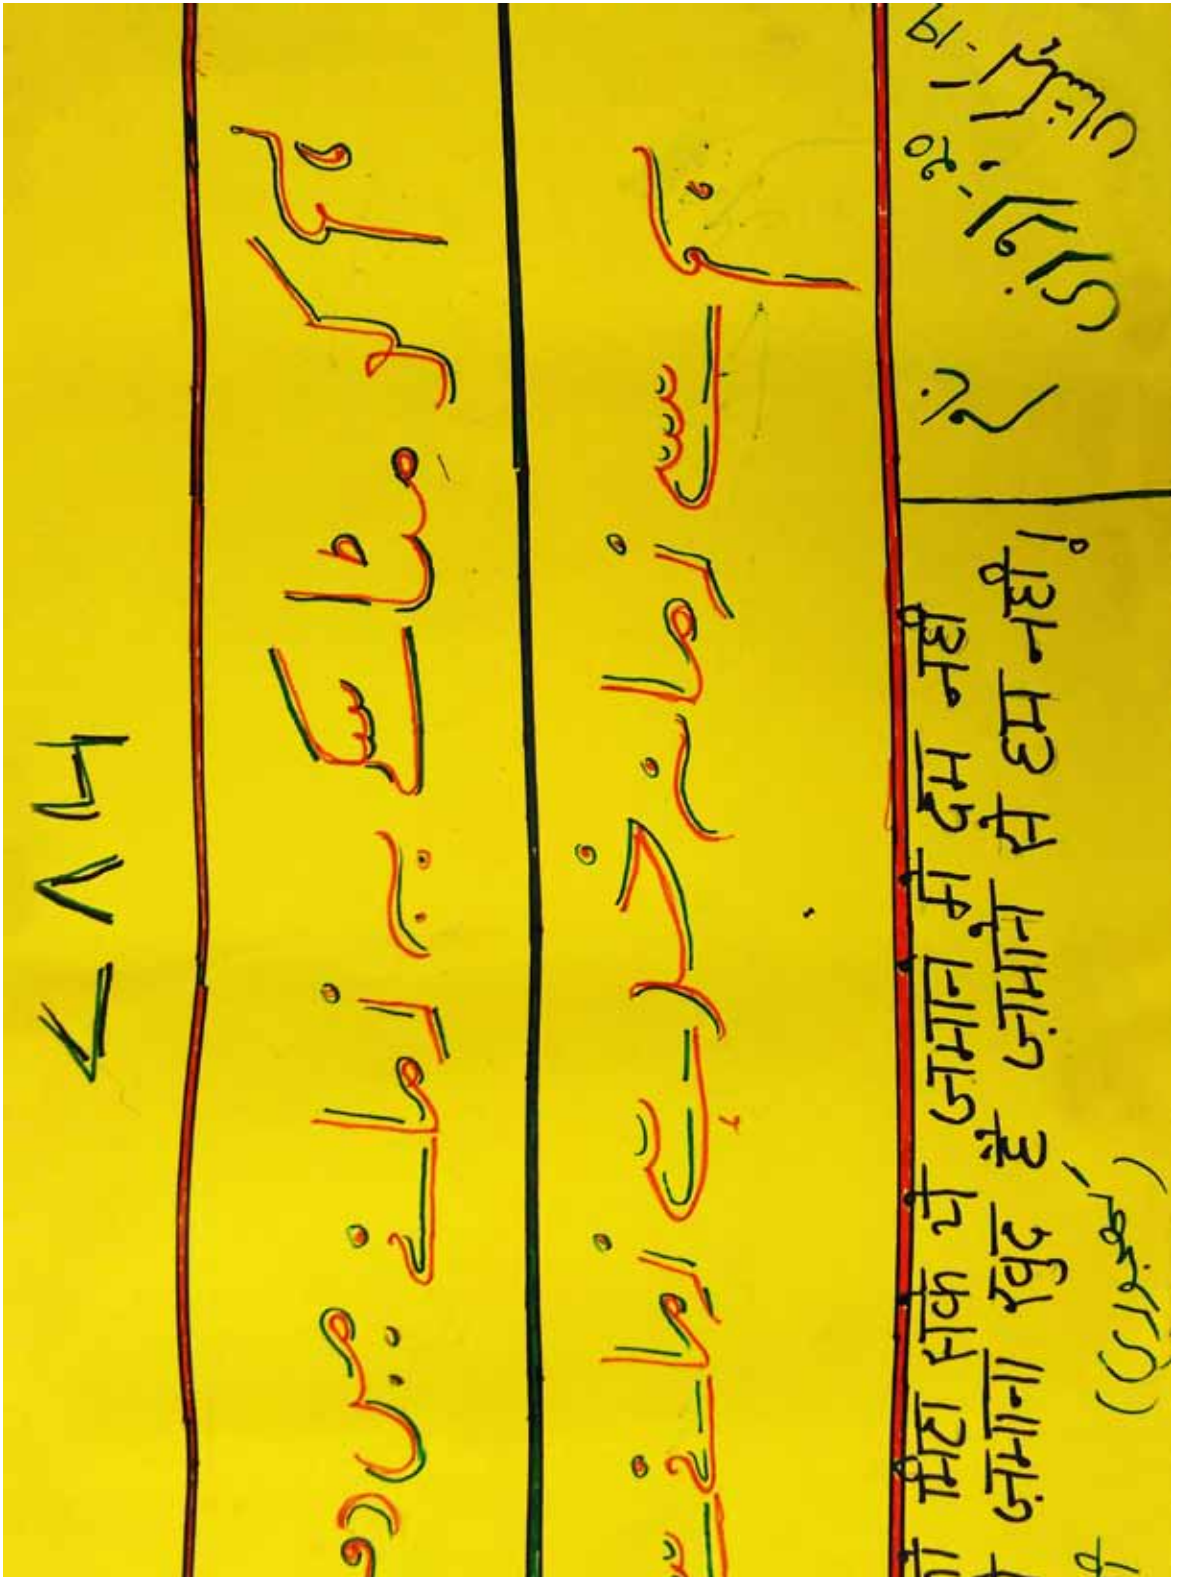 ۷۸۶
ہم کو مٹا سکے یہ زمانے میں
ہم سے زمانہ خود ہے زمانے سے
मिटा सके ये जमाने में दम नहीं
ज़माना खुद है ज़माने से हम नहीं!